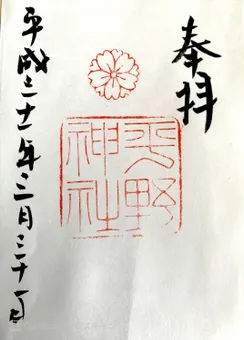 奉拝
平野
神社
平成三十一年三月三十一日